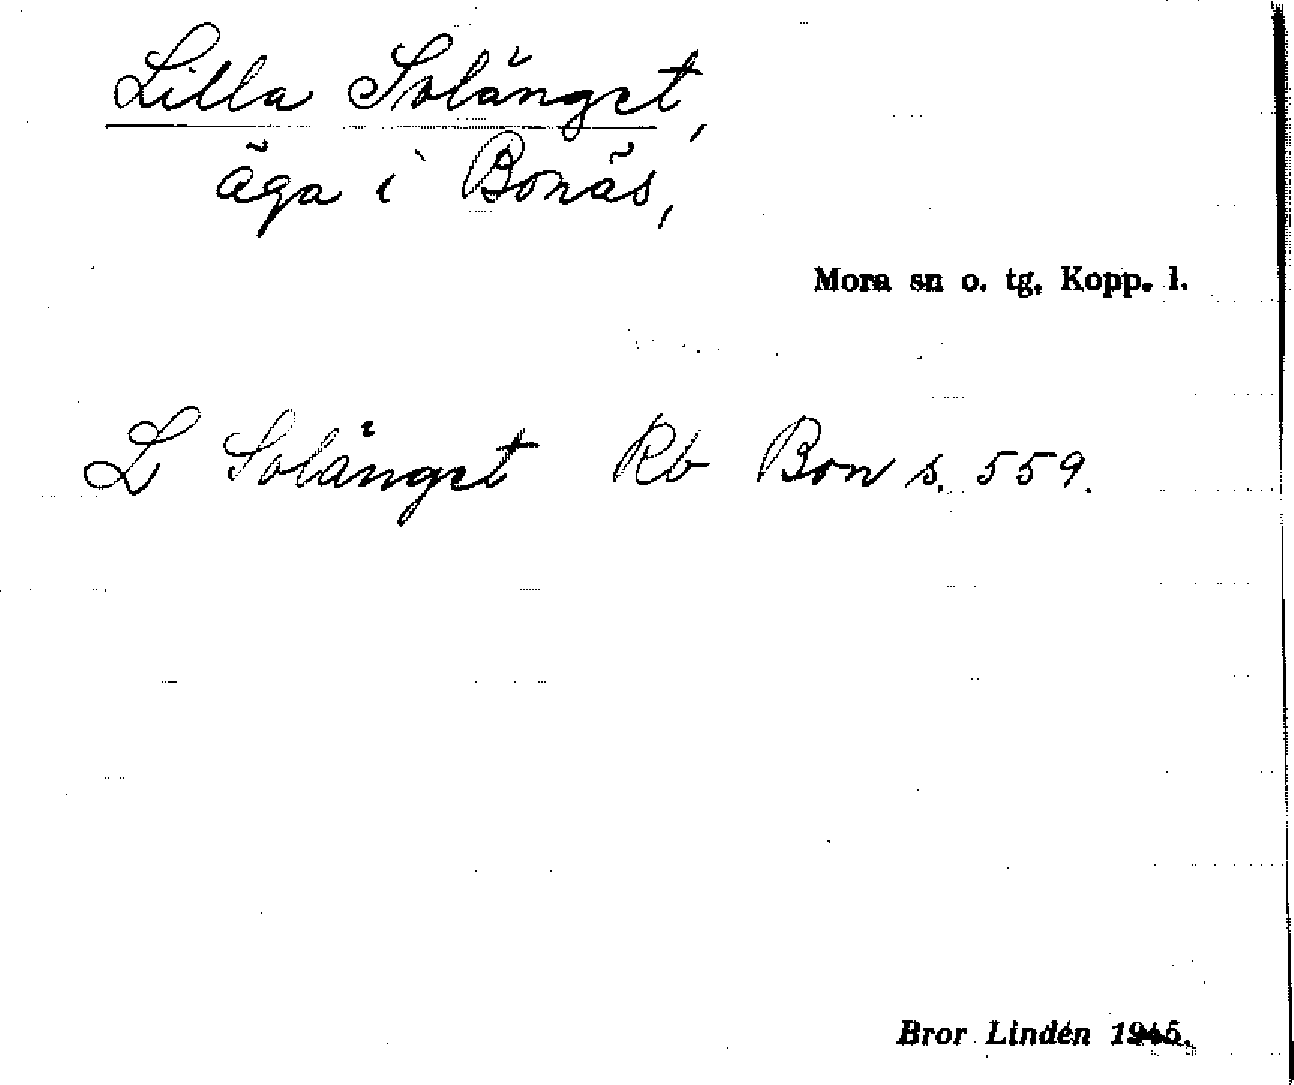 Lilla Solänget,
äga i Bonäs,
Mora sn o. tg. Kopp. l.
L Solänget Rb Bon s. 559.
Bror Lindén 1945.